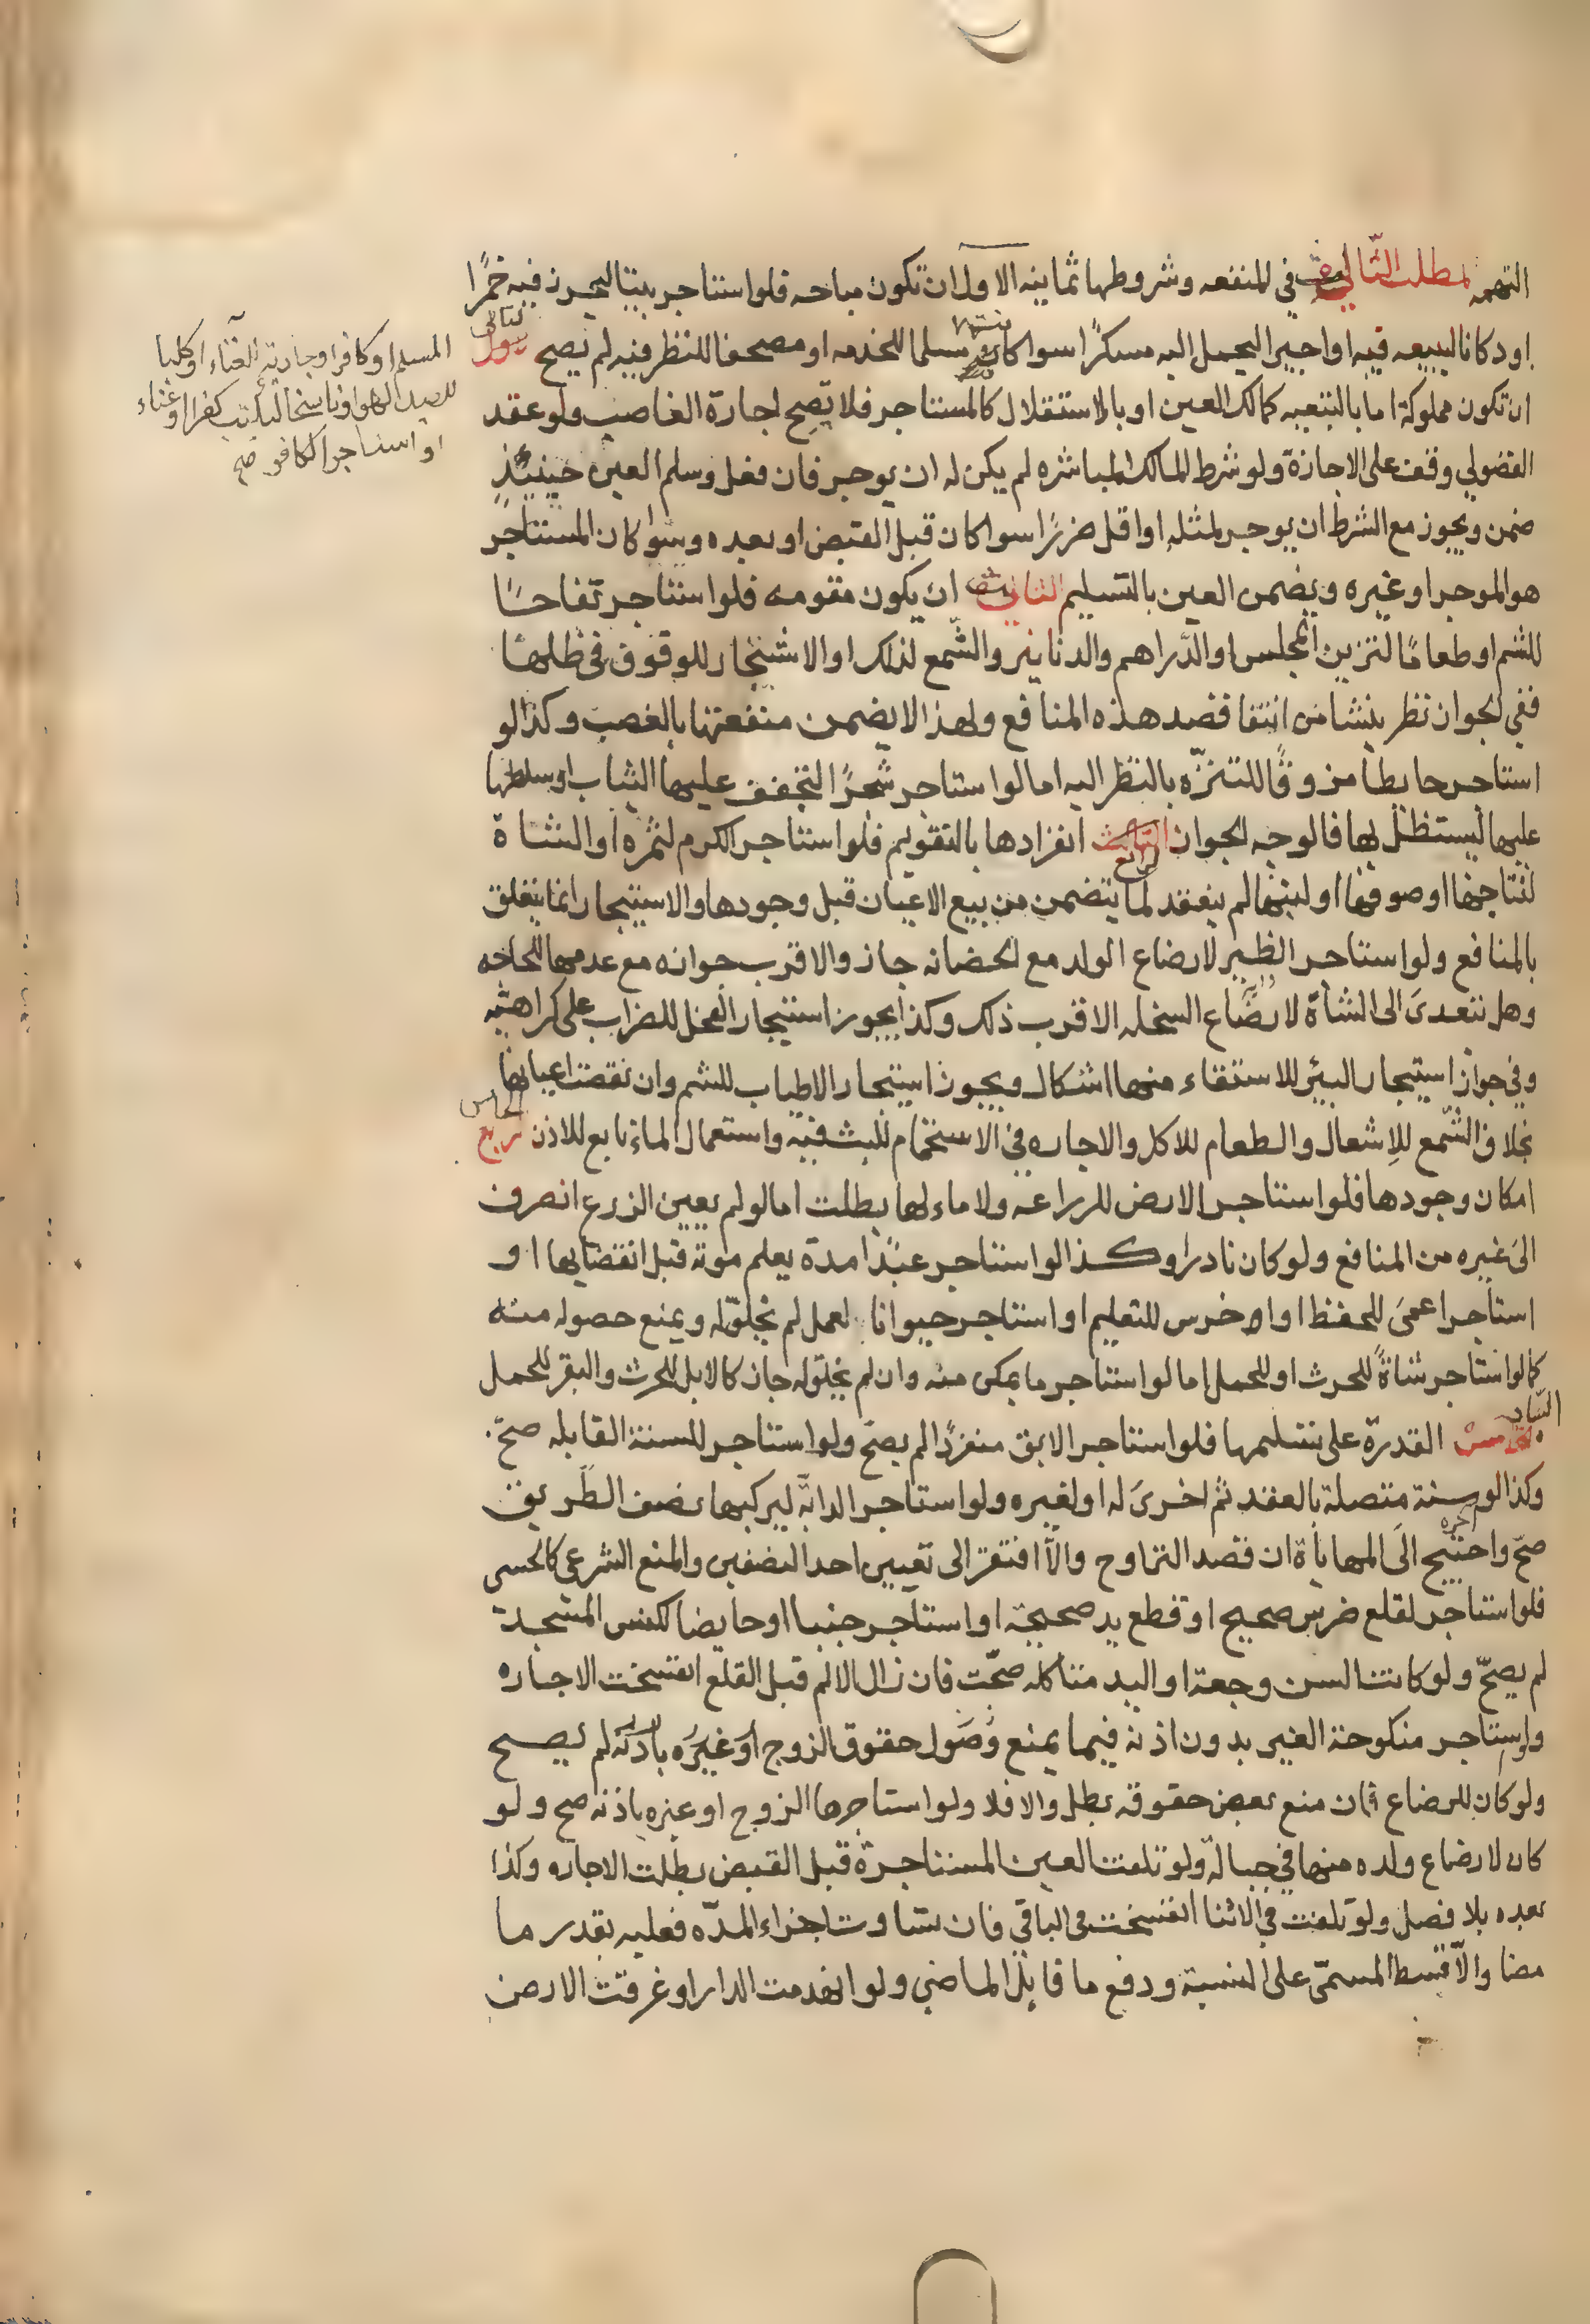 التهمه المطلب الثالث في المنفعه وشروطها ثمانيه الاول ان تكون مباحه فلو استاجر بيتا ليحرز فيه خمرًا
او دكانا ليبيعه فيه او اجيرا ليحمل اليه مسكرًا سوا كان مسلما للخدمه او مصحفا للنظر فيه لم يصح الثاني
المسلم او كافرا وجارية الغناء او كلبا
للصيد للهو او ناسخا ليكتب كفرا او غناء
او استاجر الكافر صح
ان تكون مملوكة اما بالتبعيه كمالك العين او بالاستقلال كالمستاجر فلا تصح اجارة الغاصب ولو عقد
الفضولي وقفت على الاجازة ولو شرط المالك المباشره لم يكن له ان يوجر فان فعل وسلم العين حينيئذٍ
ضمن ويجوز مع الشرط ان يوجر لمثله او اقل ضررًا سوا كان قبل القبض او بعده وسوا كان المستاجر
هو الموجر او غيره ويضمن العين بالتسليم الثالث ان يكون متقومه فلو استاجر تفاحًا
للشم او طعامًا لتزيين المجلس او الدَّراهم والدنانير والشّمع لذلك او الاشجار للوقوف في ظلها
ففي الجواز نظر ينشا من انتفا قصد هذه المنافع ولهذا لا يضمن منفعتها بالغصب وكذا لو
استاجر حايطا مزوقًا للتنزّه بالنظر اليه اما لو استاجر شجرًا لتجفف عليها الثياب او بسطها
عليها ليستظل بها فالوجه الجواز الرابع انفرادها بالتقويم فلو استاجر الكرم لثمره او الشاة
لنتاجها او صوفها او لبنها لم ينعقد لما يتضمن من بيع الاعيان قبل وجودها والاستيجار انما يتعلق
بالمنافع ولو استاجر الظير لارضاع الولد مع الحضانه جاز والاقرب جوازه مع عدمها للحاجه
وهل تتعدى الى الشاة لارضاع السخله الاقرب ذلك وكذا يجوز استيجار الفحل للضراب على كراهيه
وفي جواز استيجار البئر للاستقاء منها اشكال ويجوز استيجار الاطياب للشم وان نقصت اعيانها
بخلاف الشّمع للإشعال والطعام للاكل والاجاره في الاستحمام للبث فيه واستعمال الماء تابع للاذن الخامس
امكان وجودها فلو استاجر الارض للزراعه ولا ماء لها بطلت اما لو لم يعين الزرع انصرف
الى غيره من المنافع ولو كان نادرا وكذا لو استاجر عبدًا مدة يعلم موته قبل انقضايها او
استاجر اعمى للحفظ او اخرس للتعليم او استاجر حيوانا لعمل لم يخلق له ويمنع حصوله منه
كما لو استاجر شاةً للحرث او للحمل اما لو استاجر ما يمكن منه وان لم يخلق له جاز كالابل للحرث والبقر للحمل
السادس القدرة على تسليمها فلو استاجر الابق منفردًا لم يصح ولو استاجر للسنة القابله صحّ
وكذا لو سنة متصلة بالعقد ثم اخرى له او لغيره ولو استاجر الدابّة ليركبها نصف الطّريق
صحّ واحتيج الى المهاياة ان قصد التناوب والّا افتقر الى تعيين احد النصفين والمنع الشرعي كالحسي
فلو استاجر لقلع ضرس صحيح او قطع يد صحيحة او استاجر جنبا او حايضا لكنس المسجد
لم يصحّ ولو كانت السن وجعة او اليد متاكله صحّت فان زال الالم قبل القلع انفسخت الاجاره
ولو استاجر منكوحة الغير بدون اذنه فيما يمنع وصول حقوق الزوج او غيره باذنه لم يصح
ولو كان للرضاع فان منع بعض حقوقه بطل والا فلا ولو استاجرها الزوج او غيره باذنه صح ولو
كان لارضاع ولده منها في حباله ولو تلفت العين المستاجرة قبل القبض بطلت الاجاره وكذا
بعده بلا فصل ولو تلفت في الاثنا انفسخت في الباقي فان تساوت اجزاء المدّه فعليه بقدر ما
مضا والّا قسط المسمّى على النسبة ودفع ما قابل الماضي ولو انهدمت الدار او غرقت الارض